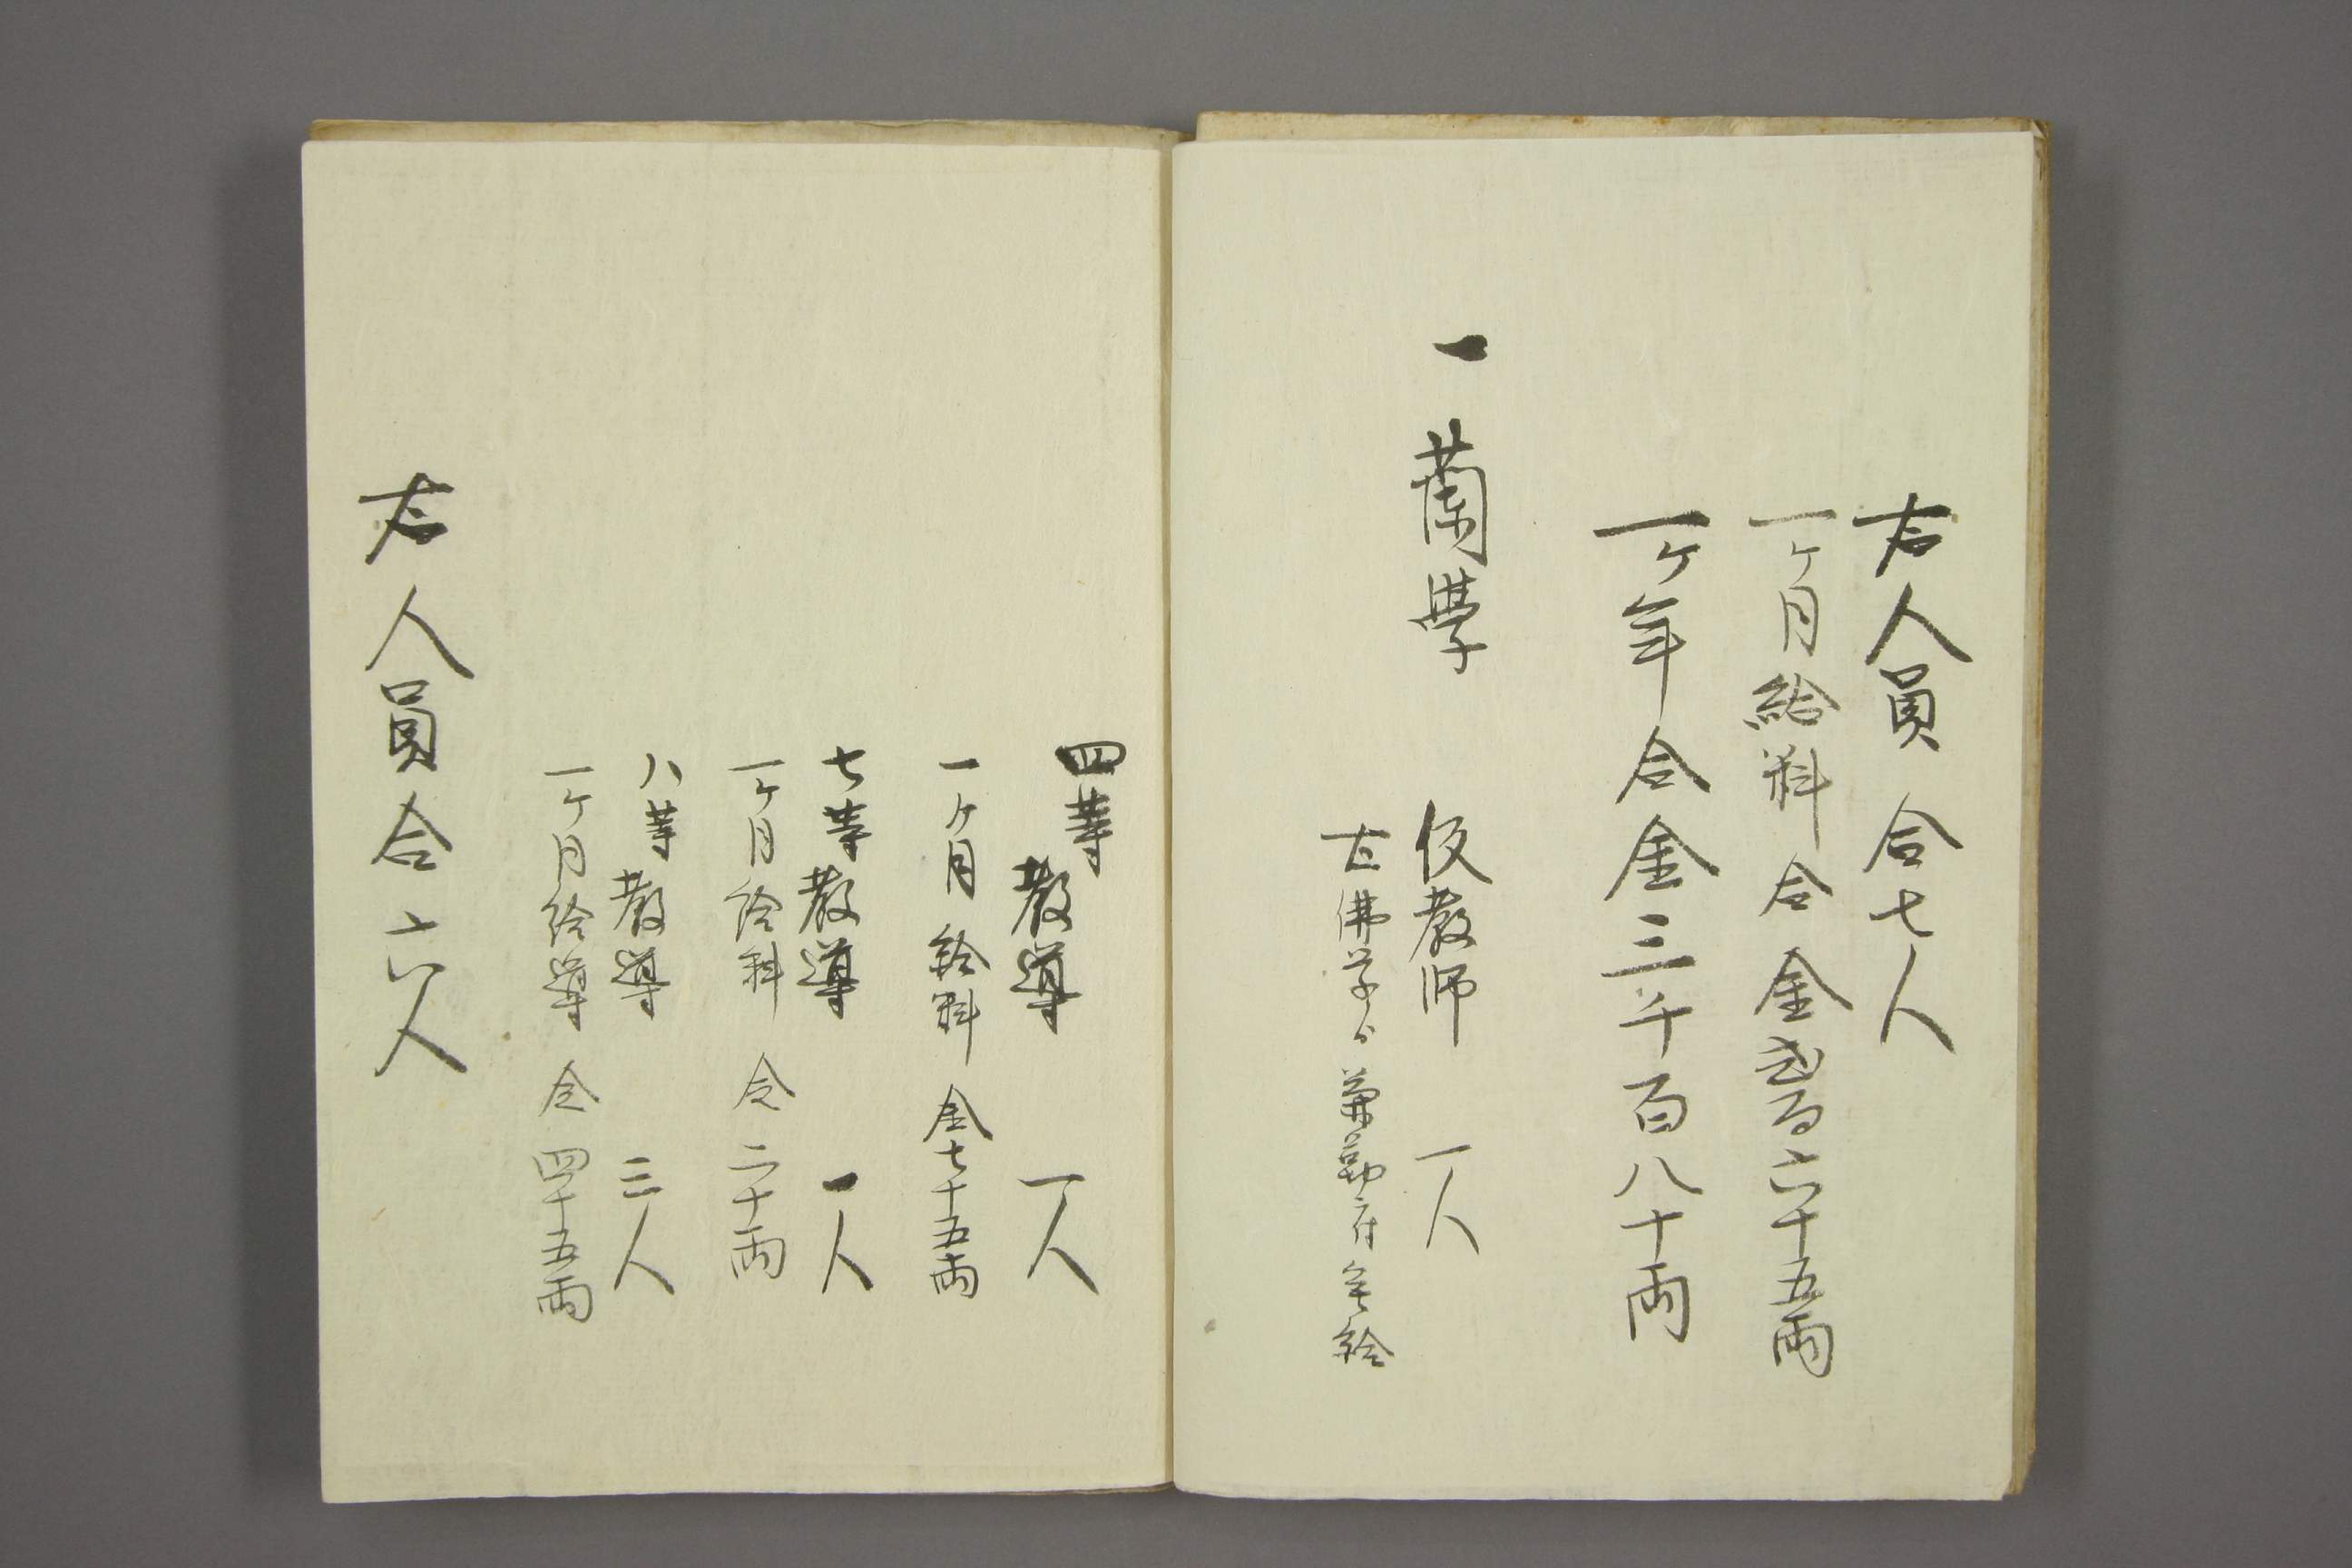 右人員合七人
一ヶ月給料合金弐百六十五両
一ヶ年合金三千百八十両
一 蘭學 仮教師 一人
右佛学ゟ兼勤ニ付無給
四等教導 一人
一ヶ月給料 金七十五両
七等教導 一人
一ヶ月給料 金二十両
八等教導 三人
一ヶ月給導 金四十五両
右人員合六人